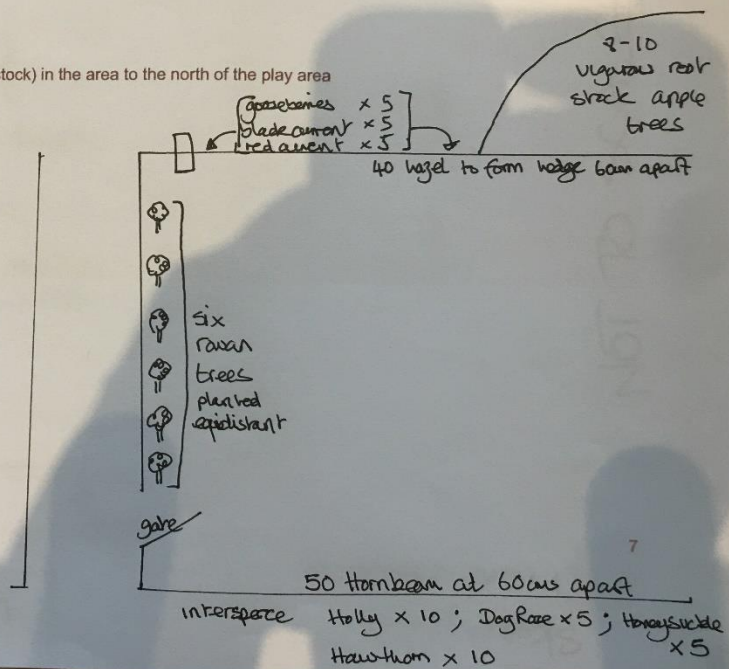 tock) in the area to the north of the play area
8-10
vigorous root
stock apple
trees
gooseberries x 5
blackcurrent x 5
redcurrent x 5
40 hazel to form hedge 60cm apart
six
rowan
trees
planted
equidistant
gate
7
50 Hornbeam at 60cms apart
intersperce Holly x 10 ; Dog Rose x 5 ; Honeysuckle
x 5
Hawthorn x 10